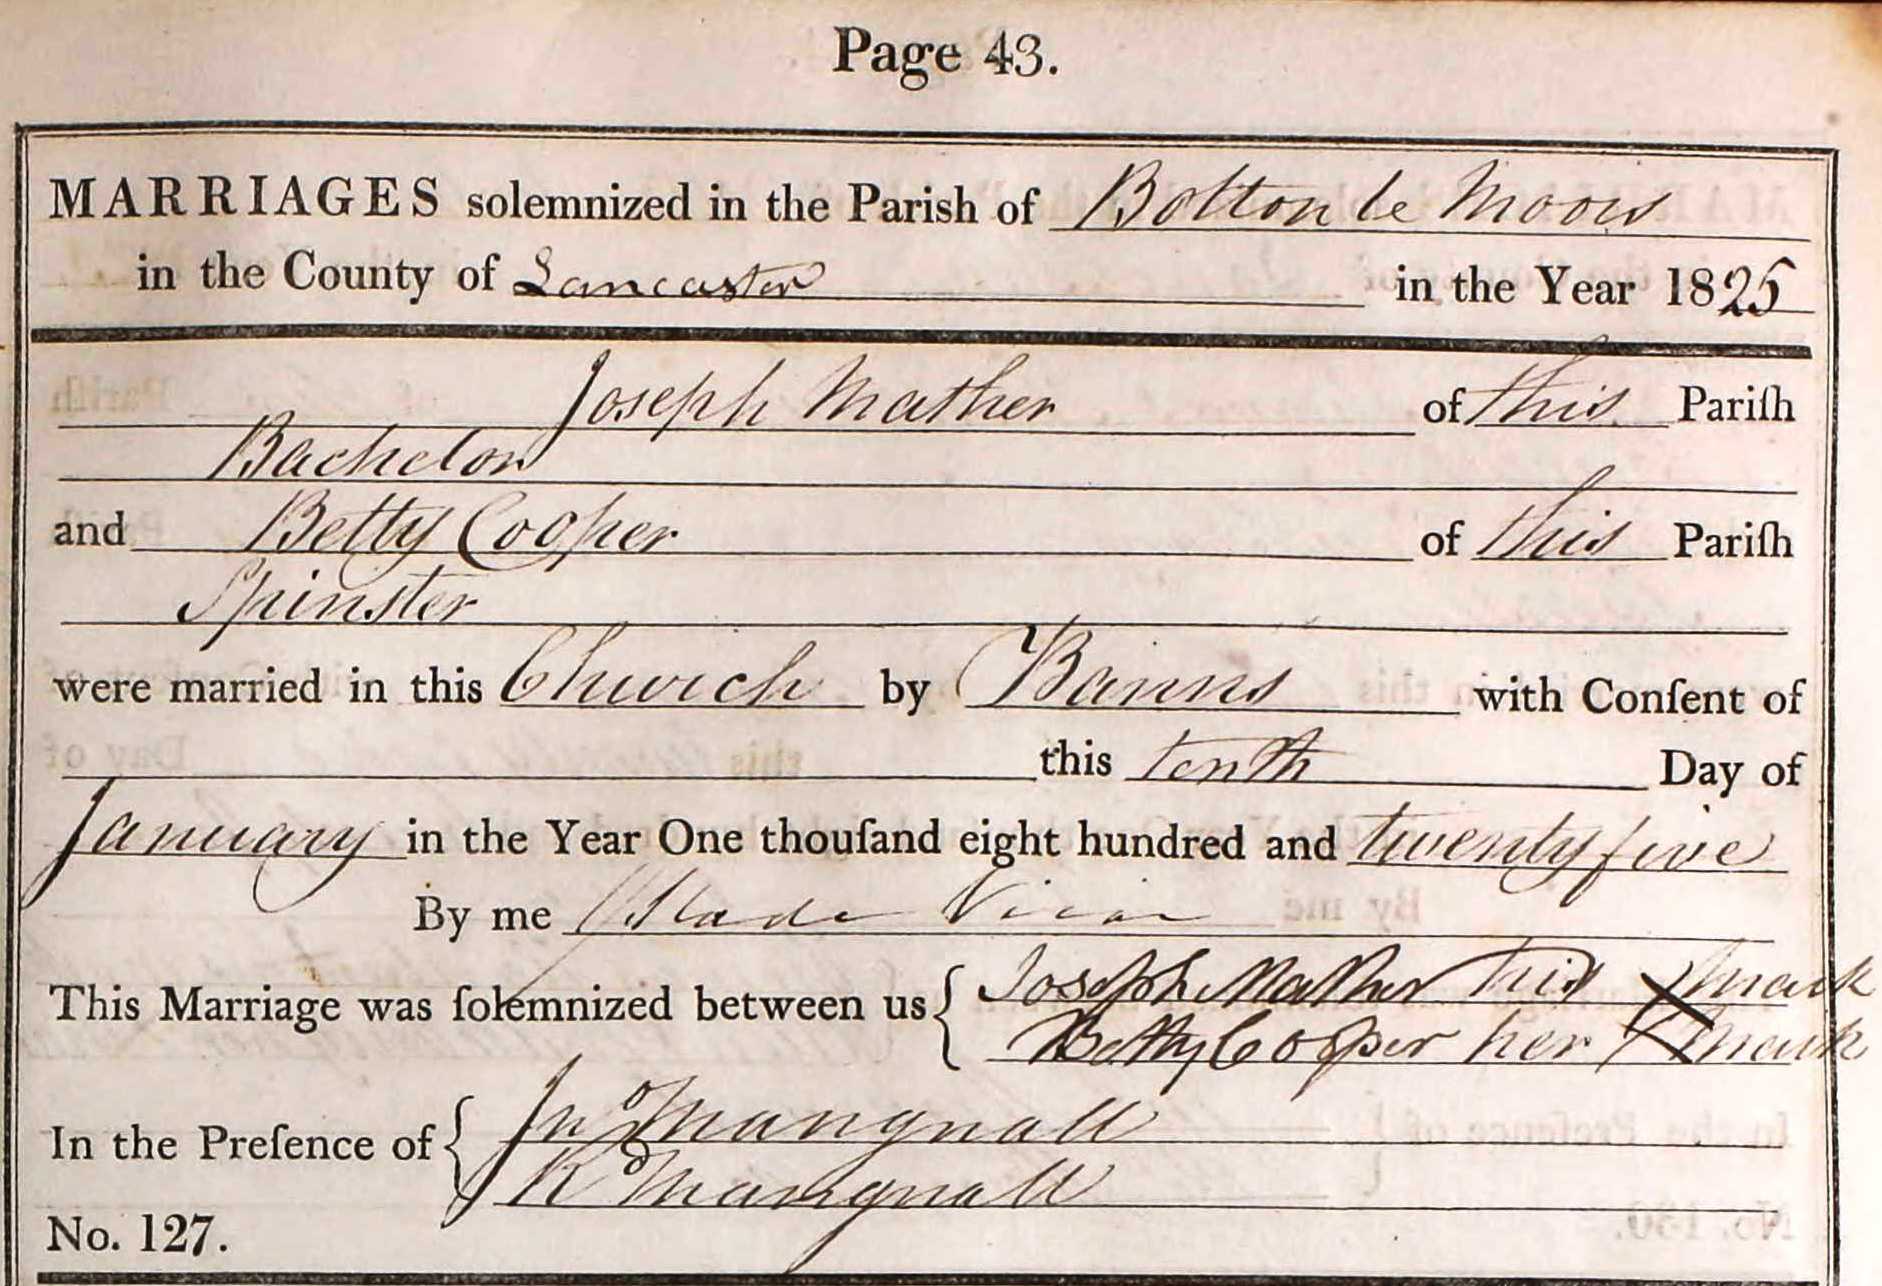 Page 43.
MARRIAGES solemnized in the Parish of Bolton le Moors
in the County of Lancaster in the Year 1825
Joseph Mather of this Pariſh
Bachelor
and Betty Cooper of this Pariſh
Spinster
were married in this Church by Banns with Conſent of
this tenth Day of
January in the Year One thouſand eight hundred and twenty five
By me Slade Vicar
This Marriage was ſolemnized between us { Joseph Mather his X mark
Betty Cooper her X mark
In the Preſence of { Jno Mangnall
R Mangnall
No. 127.